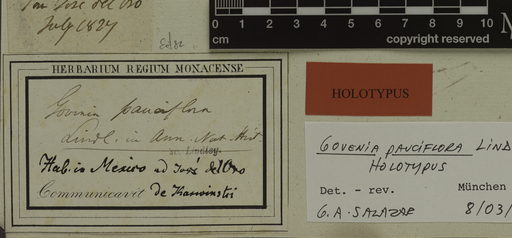 San José del Oro
July 1827
0 1 2 3 4 5 6 7 8 9 10
cm
copyright reserved
HERBARIUM REGIUM MONACENSE
Govenia pauciflora
Lindl. in Ann. Nat. Hist.
Lindley.
Hab. in Mexico ad José del Oro
Communicavit de Karwinski
HOLOTYPUS
GOVENIA PAUCIFLORA LIND
HOLOTYPUS
Det. - rev. München
G.A. SALAZAR 8/03/